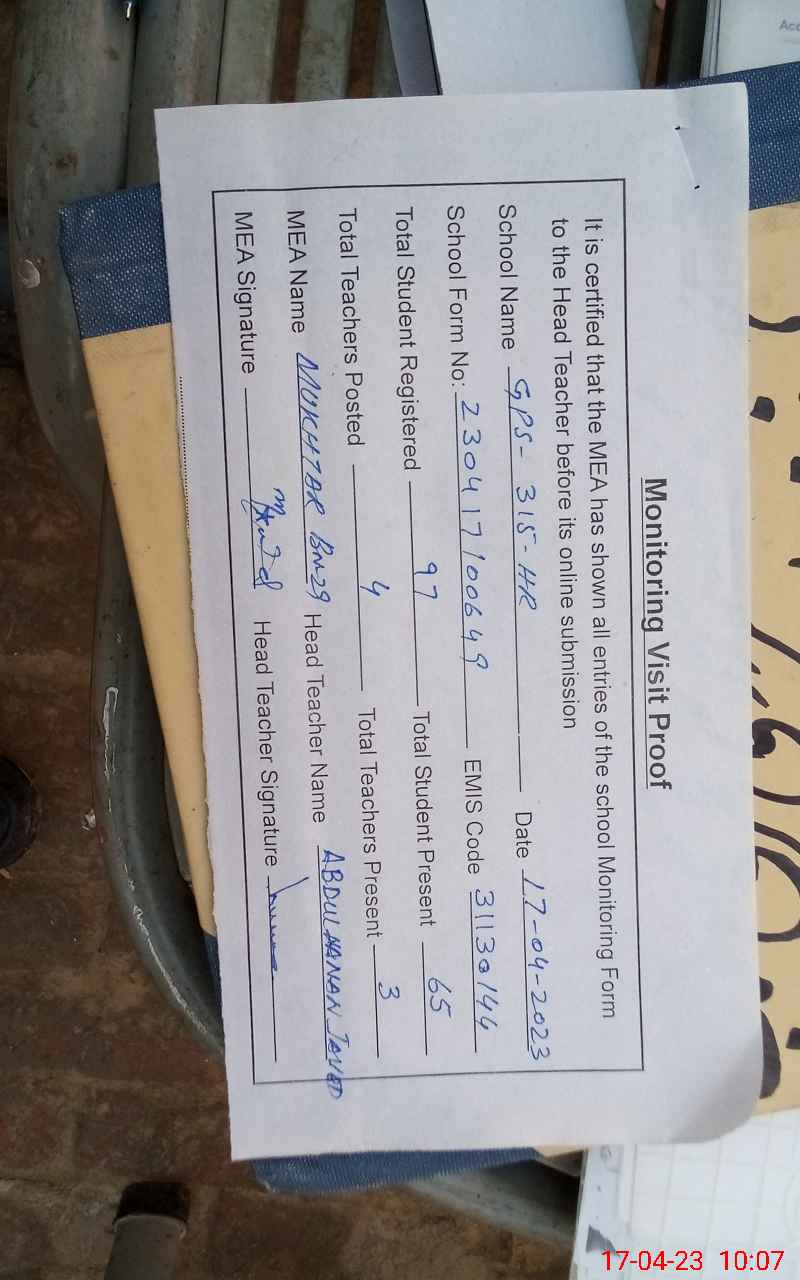 Monitoring Visit Proof
It is certified that the MEA has shown all entries of the school Monitoring Form
to the Head Teacher before its online submission
School Name GPS-315-HR Date 17-04-2023
School Form No: 230417100649 EMIS Code 31130144
Total Student Registered 97 Total Student Present 65
Total Teachers Posted 4 Total Teachers Present 3
MEA Name MUKHTAR BN-29 Head Teacher Name ABDUL HANAN JAVED
MEA Signature Head Teacher Signature
Acc
17-04-23 10:07